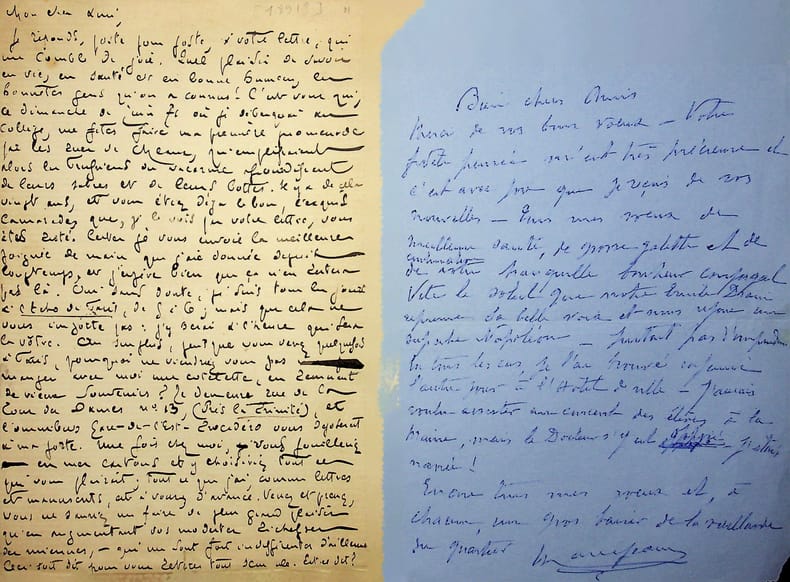 Mon cher ami,
Je réponds, poste pour poste, à votre lettre, qui
me comble de joie. Quel plaisir de savoir
en vie, en santé et en bonne humeur, les
honnêtes gens qu'on a connus! C'est vous qui,
ce dimanche de juin 71 où je débarquai au
Collège, me fîtes faire ma première promenade
par les rues de
alors les du vacarme
de leurs sabres et de leurs bottes. Il y a de cela
vingt ans, et vous étiez déjà le bon, l'exquis
camarade que, je le vois par votre lettre, vous
êtes resté. Enfin je vous envoie la meilleure
poignée de main que j'aie donnée depuis
longtemps, et j'espère bien que ça n'en restera
pas là. Oui sans doute, je suis tous les jours
à l'Echo de Paris, de 5 à 6; mais que cela ne
vous importe pas: j'y serai à l'heure qui sera
la vôtre. Au surplus, puisque vous venez quelquefois
à Paris, pourquoi ne viendriez vous pas
manger avec moi une côtelette, en remuant
de vieux souvenirs? Je demeure rue de la
Tour des Dames n° 13, (Près la Trinité), et
l'omnibus Gare-de-l'Est-Trocadéro vous déposerait
à ma porte. Une fois chez moi, vous fouillerez
en mes cartons et y choisirez tout ce
qui vous plairait; tout ce que j'ai comme lettres
et manuscrits, est à vous d'avance. Venez et prenez,
vous ne sauriez me faire de plus grand plaisir
qu'en augmentant vos modestes richesses
des miennes, - qui me sont fort indifférentes d'ailleurs.
Ceci soit dit pour vous seul. Est-ce dit?
Bien chers Amis
Merci de vos bons voeux - Votre
fidèle pensée m'est très précieuse et
c'est avec joie que je reçois de vos
nouvelles - Tous mes voeux de
meilleure santé, de grosse galette et de
continuation
de votre tranquille bonheur conjugal
Vite le soleil que notre Emile Drain
reprenne sa belle voix et nous rejoue un
superbe Napoléon - surtout pas d'imprudence
En tous les cas, je l'ai trouvé rajeuni
l'autre jour à l'Hotel de ville - J'aurais
voulu assister au concert des élèves à la
mairie, mais le Docteur s'y est opposé - J'étais
navrée!
Encore tous mes voeux et, à
chacun, un gros baiser de la vaillante
du quartier